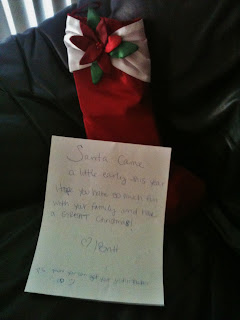 Santa Came
a little early this year
Hope you have so much fun
with your family and have
a GREAT Christmas!
♡ Britt